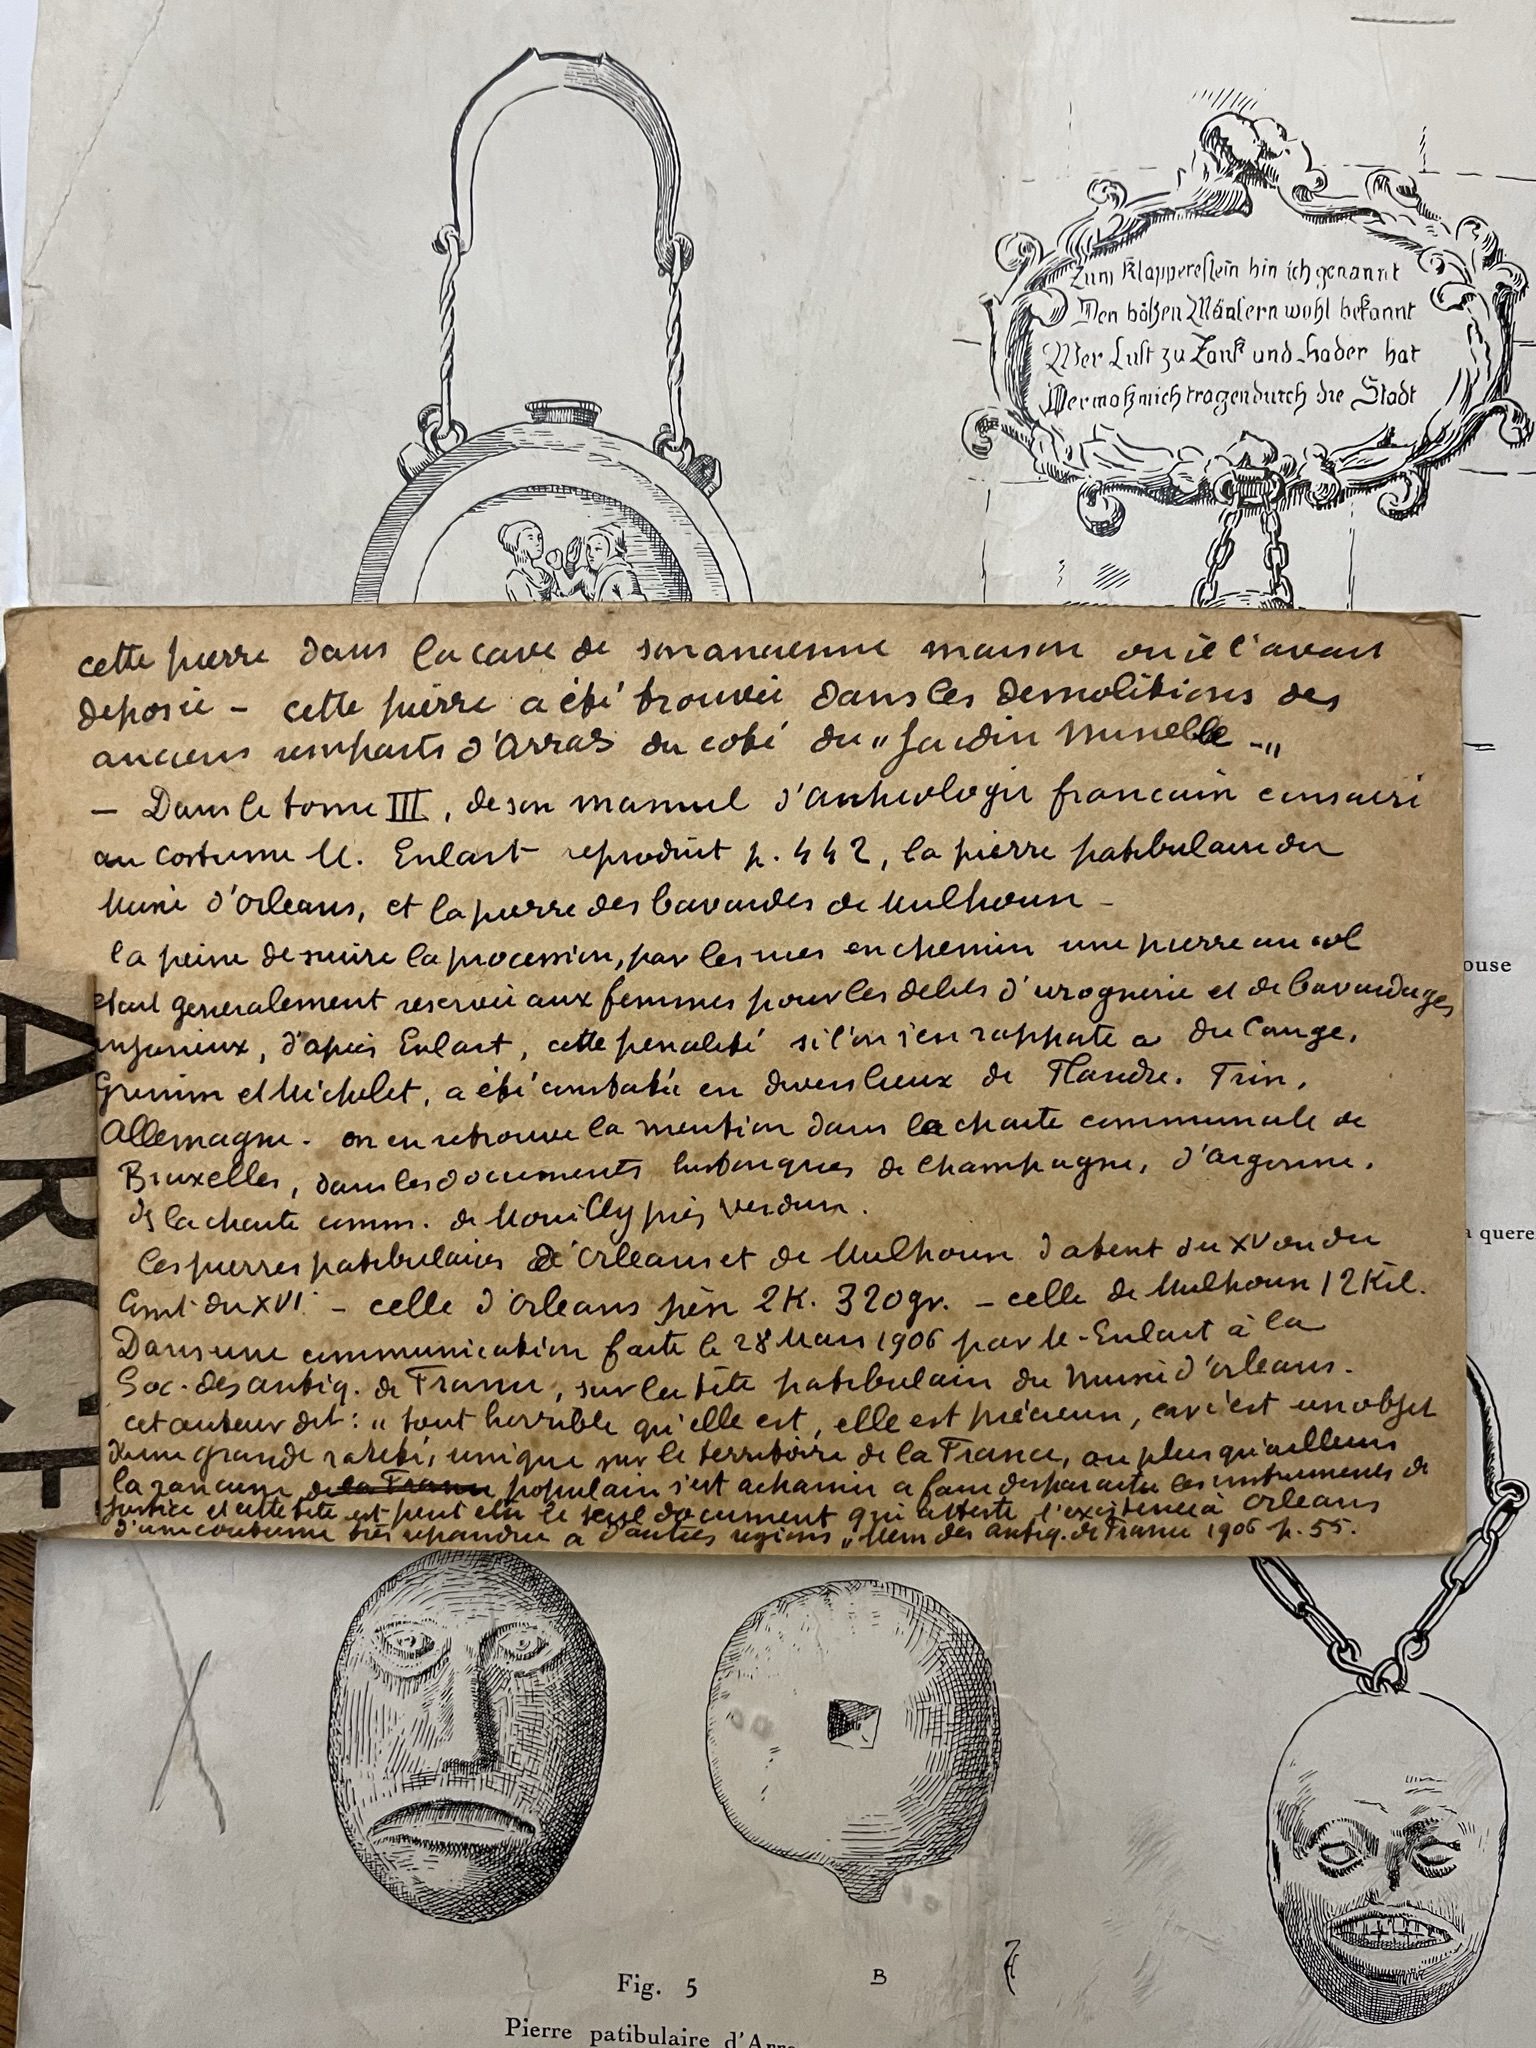 Zum Klapperstein bin ich genannt
Den bößen Mäulern wohl bekannt
Wer Lust zu Zank und Hader hat
Der moß mich tragen durch die Stadt
cette pierre dans la cave de son ancienne maison où il l'avait
deposée – cette pierre a été trouvée dans les demolitions des
anciens remparts d'Arras du coté du „ Jardin Minelle -„
– Dans le tome III, de son manuel d'archeologie francaise consacré
au costume M. Enlart reproduit p. 442, la pierre patibulaire du
Musée d'Orleans, et la pierre des bavardes de Mulhouse –
la peine de suivre la procession, par les rues en chemise une pierre au col
etait generalement reservée aux femmes pour les delits d'ivrognerie et de bavardages
injurieux, d'après Enlart, cette penalité si l'on s'en rapporte a du Cange,
Grimm et Michelet, a été constatée en divers lieux de Flandre. Frise,
Allemagne. on en retrouve la mention dans la charte communale de
Bruxelles, dans les documents historiques de Champagne, d'argonne,
ds la charte comm. de Mouilly près Verdun.
les pierres patibulaires de Orleans et de Mulhouse datent du XV ou du
Comt du XVI. – celle d'Orleans pèse 2K. 320gr. – celle de Mulhouse 12 Kil.
Dans une communication faite le 28 Mars 1906 par M. Enlart à la
Soc. des antiq. de France, sur la tête patibulaire du Musée d'orleans.
cet auteur dit: „ tout horrible qu'elle est, elle est précieuse, car c'est un objet
d'une grande rareté, unique sur le territoire de la France, ou plus qu'ailleurs
la rancune de la France populaire s'est acharnée a faire disparaitre les instruments de
justice et cette tête est peut etre le seul document qui atteste l'existence à Orleans
d'une coutume très repandue a d'autres regions „ Mem des Antiq. de France 1906 p. 55.
ARCE
ouse
a quere
B
Fig. 5
Pierre patibulaire d'Arra